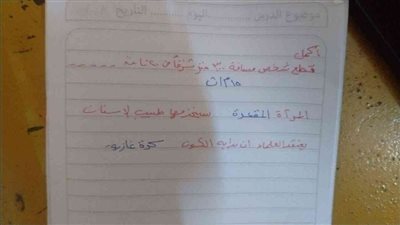 موضوع الدرس ........ اليوم ........ التاريخ
أكمل
قطع شخص مسافة ٣٠٠ متر شرقاً في ثانية ......
١٥ م/ث
المرآة المقعرة يستخدمها طبيب الاسنان
يعتقد العلماء ان بداية الكون كرة غازية